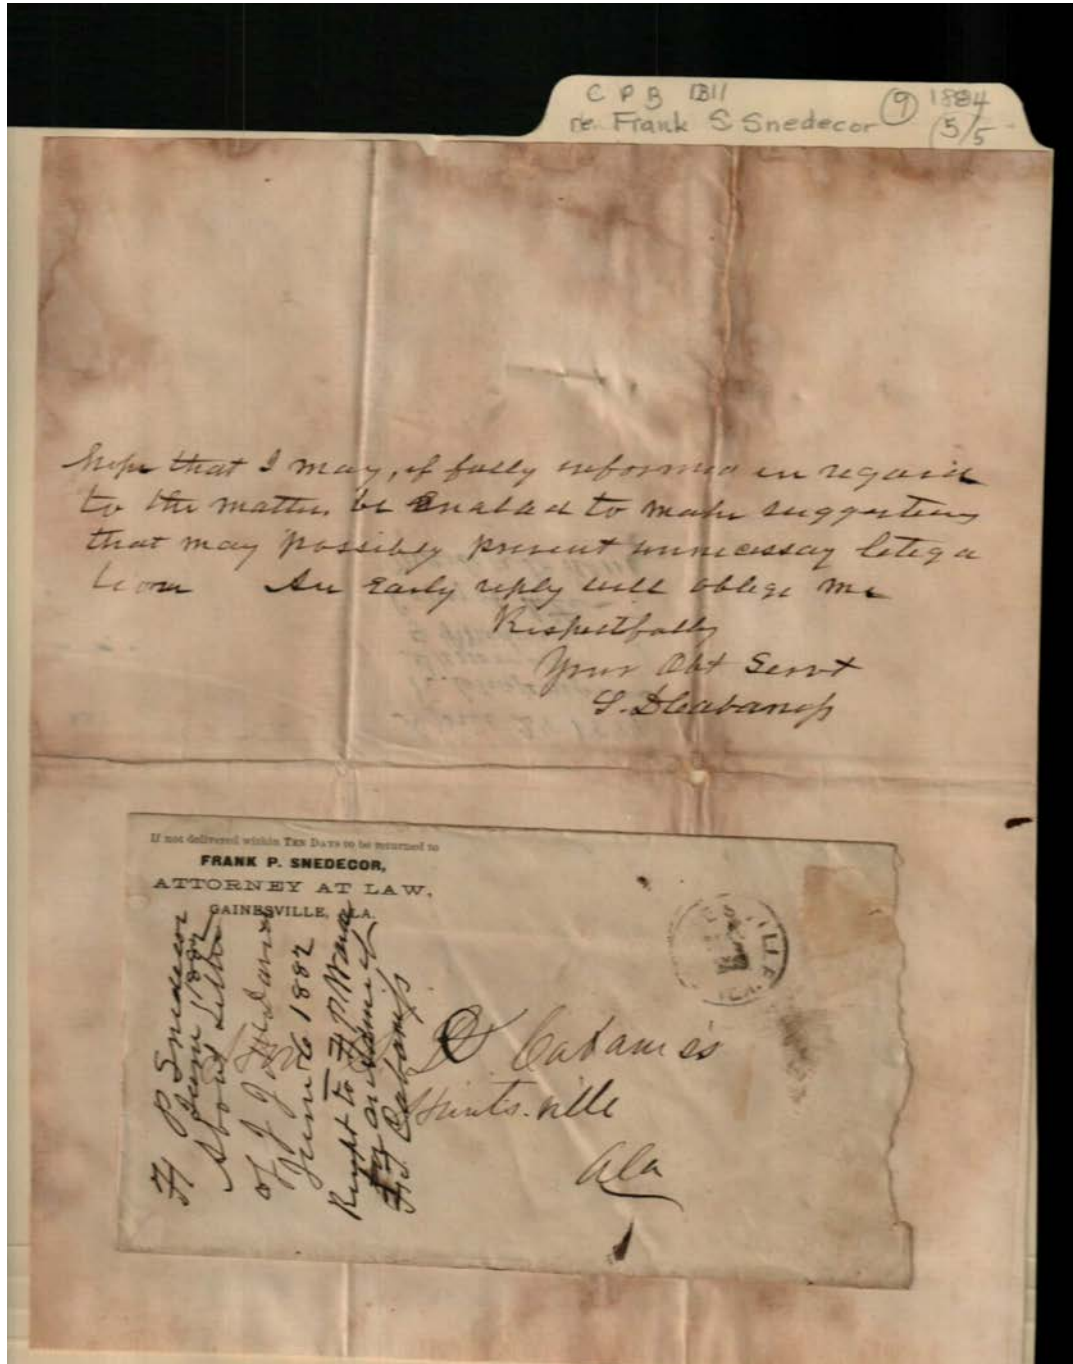 C P B 1311
re. Frank S Snedecor
9
1884
5/5
hope that I may, if fully informed in regard
to the matter, be Enabled to make suggestions
that may possibly prevent unnecessay litiga
tion An Early reply will oblige me
Respectfully
Your Obt Servt
S. D Cabaniss
If not delivered within TEN DAYS to be returned to
FRANK P. SNEDECOR,
ATTORNEY AT LAW,
GAINESVILLE, ALA.
F P Snedecor
June 1882
About Letter
of J J
June 6 1882
to F P
Cabaniss
Cabaniss
Huntsville
Ala